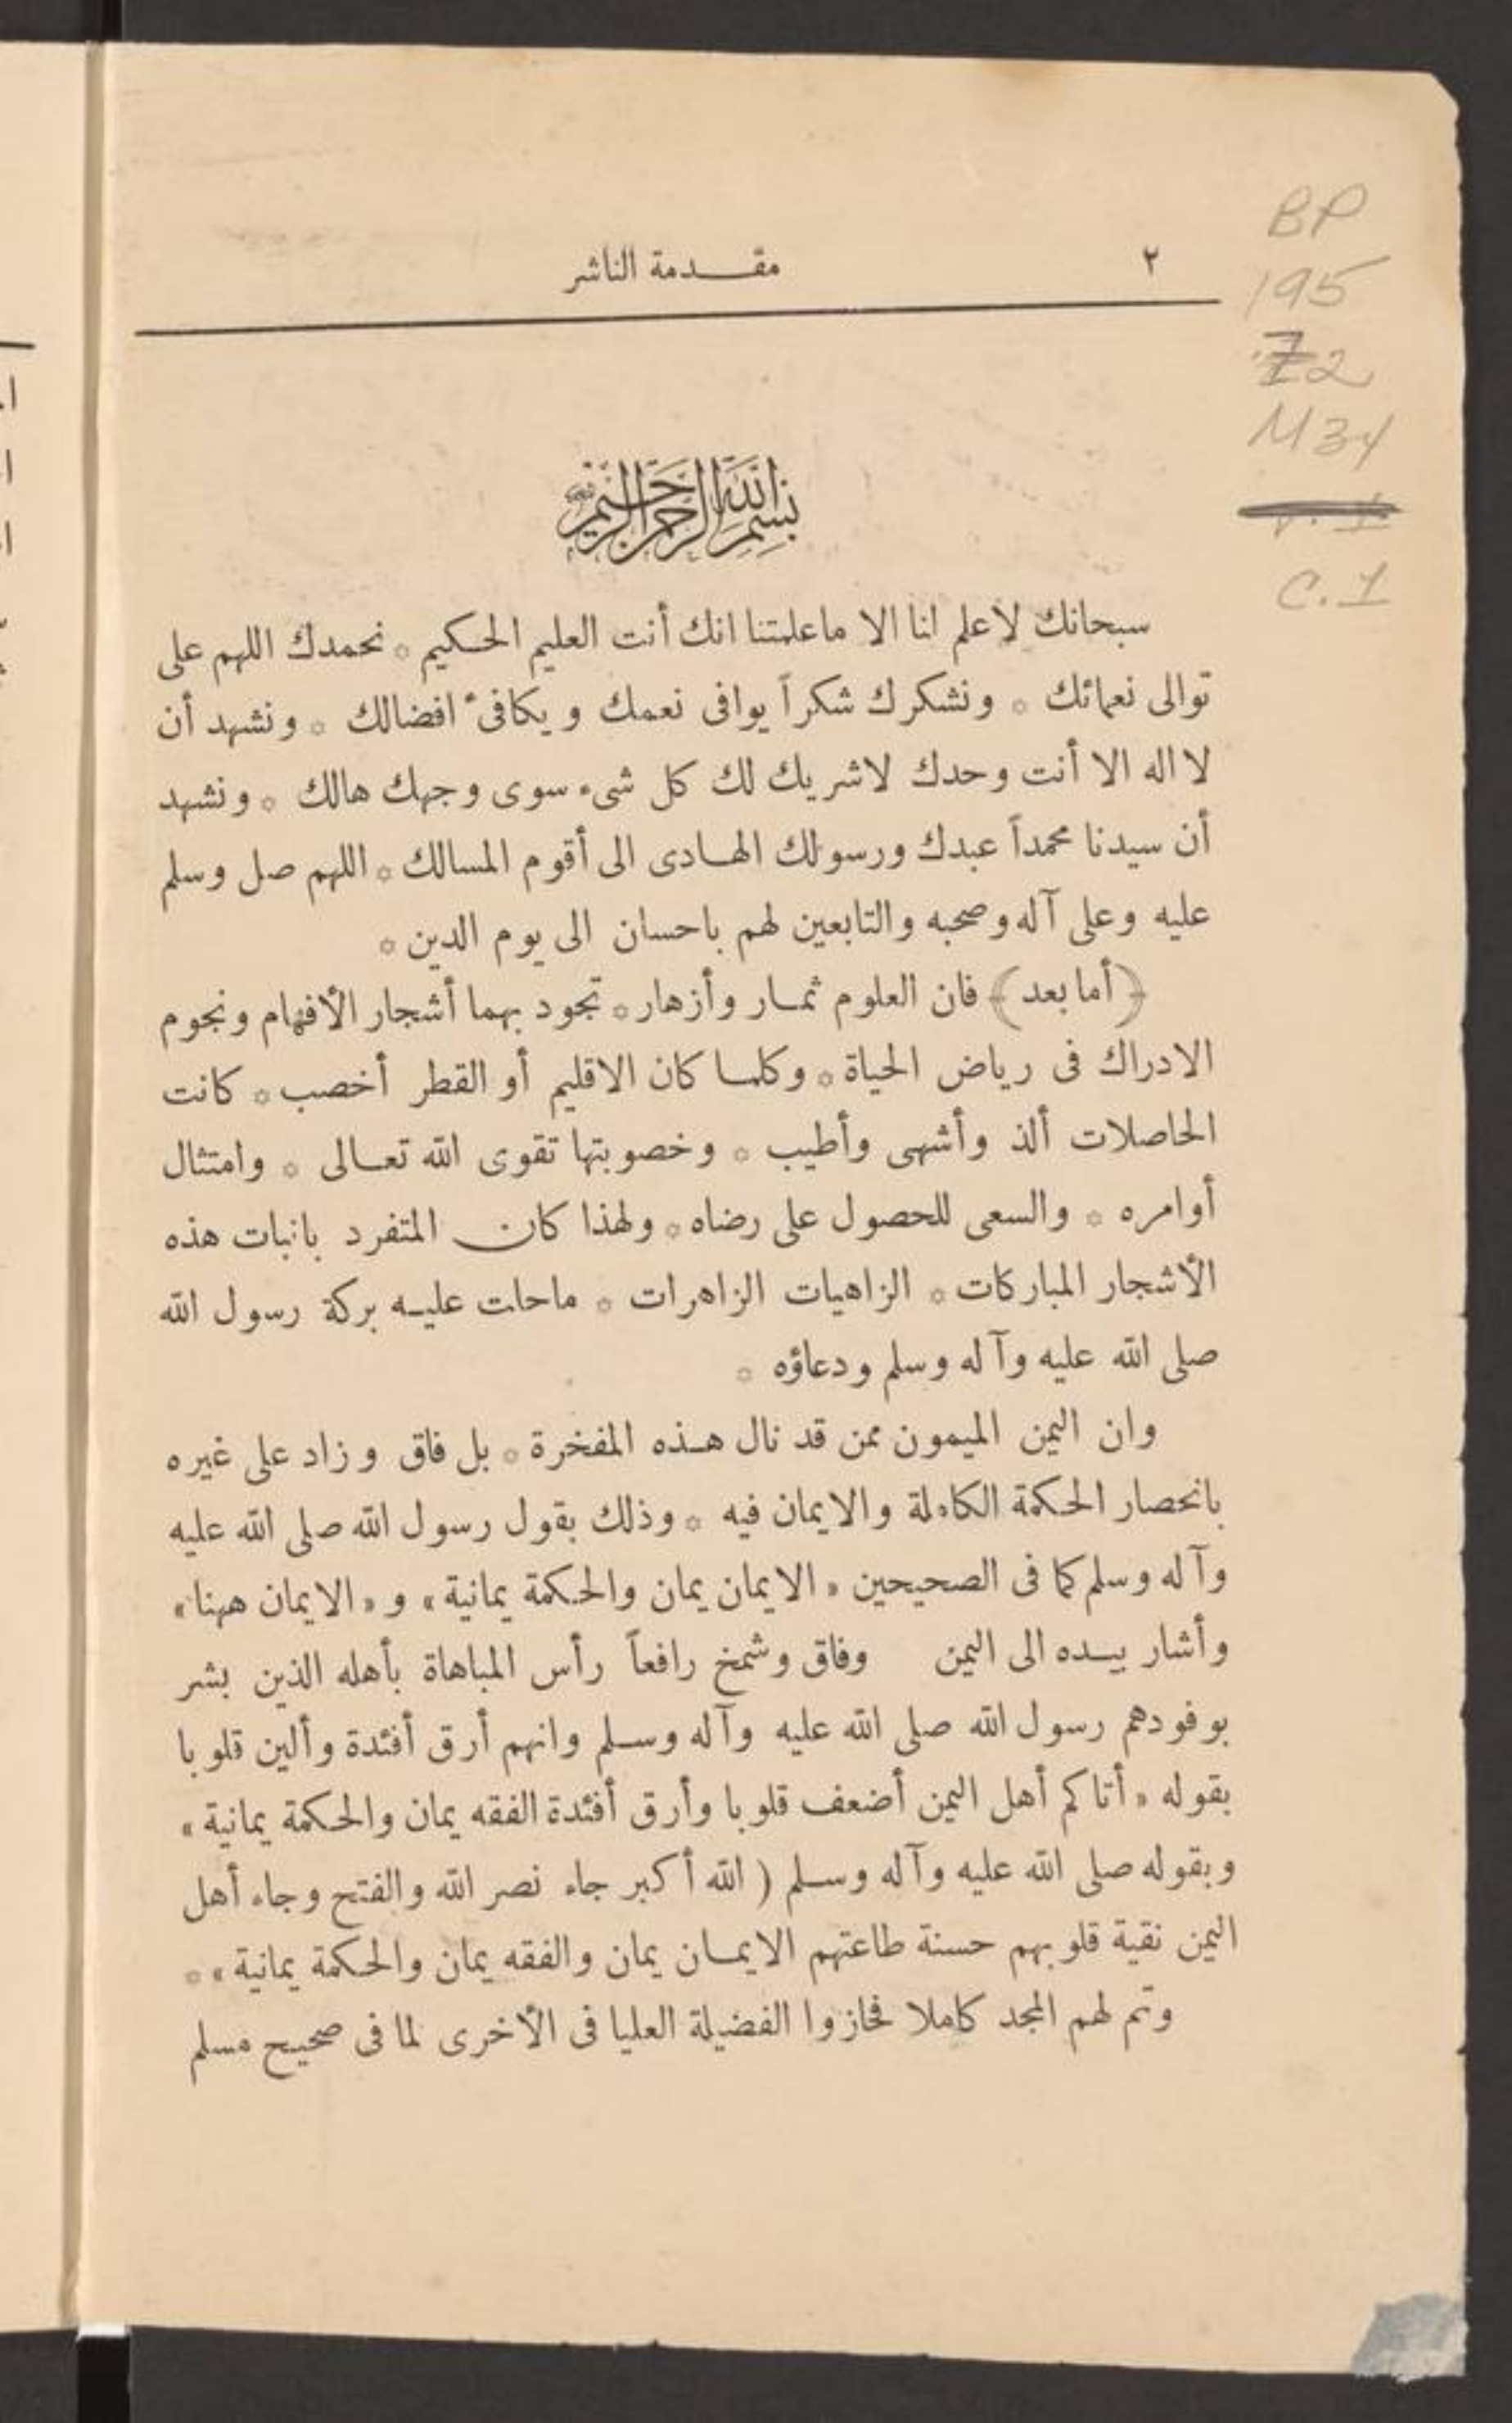 ٢
مقدمة الناشر
BP
195
Z2
M34
C.1
بسم الله الرحمن الرحيم
سبحانك لاعلم لنا الا ماعلمتنا انك أنت العليم الحكيم * نحمدك اللهم على
توالى نعمائك * ونشكرك شكراً يوافى نعمك ويكافئ افضالك * ونشهد أن
لا اله الا أنت وحدك لاشريك لك كل شىء سوى وجهك هالك * ونشهد
أن سيدنا محمداً عبدك ورسولك الهادى الى أقوم المسالك * اللهم صل وسلم
عليه وعلى آله وصحبه والتابعين لهم باحسان الى يوم الدين *
﴿أما بعد﴾ فان العلوم ثمار وأزهار * تجود بهما أشجار الأفهام ونجوم
الادراك فى رياض الحياة * وكلما كان الاقليم أو القطر أخصب * كانت
الحاصلات ألذ وأشهى وأطيب * وخصوبتها تقوى الله تعالى * وامتثال
أوامره * والسعى للحصول على رضاه * ولهذا كان المتفرد بانبات هذه
الأشجار المباركات * الزاهيات الزاهرات * ماحلت عليه بركة رسول الله
صلى الله عليه وآله وسلم ودعاؤه *
وان اليمن الميمون ممن قد نال هذه المفخرة * بل فاق وزاد على غيره
بانحصار الحكمة الكاملة والايمان فيه * وذلك بقول رسول الله صلى الله عليه
وآله وسلم كما فى الصحيحين « الايمان يمان والحكمة يمانية » و « الايمان ههنا »
وأشار بيده الى اليمن وفاق وشمخ رافعاً رأس المباهاة بأهله الذين بشر
بوفودهم رسول الله صلى الله عليه وآله وسلم وانهم أرق أفئدة وألين قلوبا
بقوله « أتاكم أهل اليمن أضعف قلوبا وأرق أفئدة الفقه يمان والحكمة يمانية »
وبقوله صلى الله عليه وآله وسلم ( الله أكبر جاء نصر الله والفتح وجاء أهل
اليمن نقية قلوبهم حسنة طاعتهم الايمان يمان والفقه يمان والحكمة يمانية » *
وتم لهم المجد كاملا فحازوا الفضيلة العليا فى الأخرى لما فى صحيح مسلم